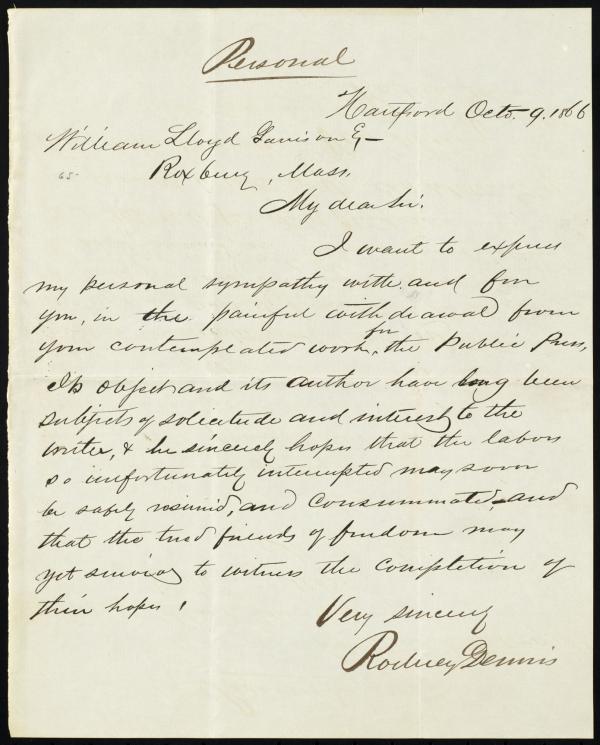 Personal
Hartford Octo. 9. 1866
William Lloyd Garrison Esq
65-
Roxbury, Mass.
My dear Sir.
I want to express
my personal sympathy with and for
you, in the painful withdrawal from
your contemplated work, for the Public Press,
Its object and its author have long been
subjects of solicitude and interest to the
writer, & he sincerely hopes that the labors
so unfortunately interrupted may soon
be safely resumed, and consummated and
that the tried friends of freedom may
yet survive to witness the completion of
their hopes!
Very sincerely
Rodney Dennis